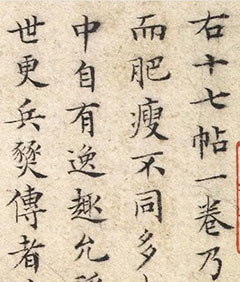 右十七帖一卷乃
而肥瘦不同多
中自有逸趣允
世更兵燹傳者